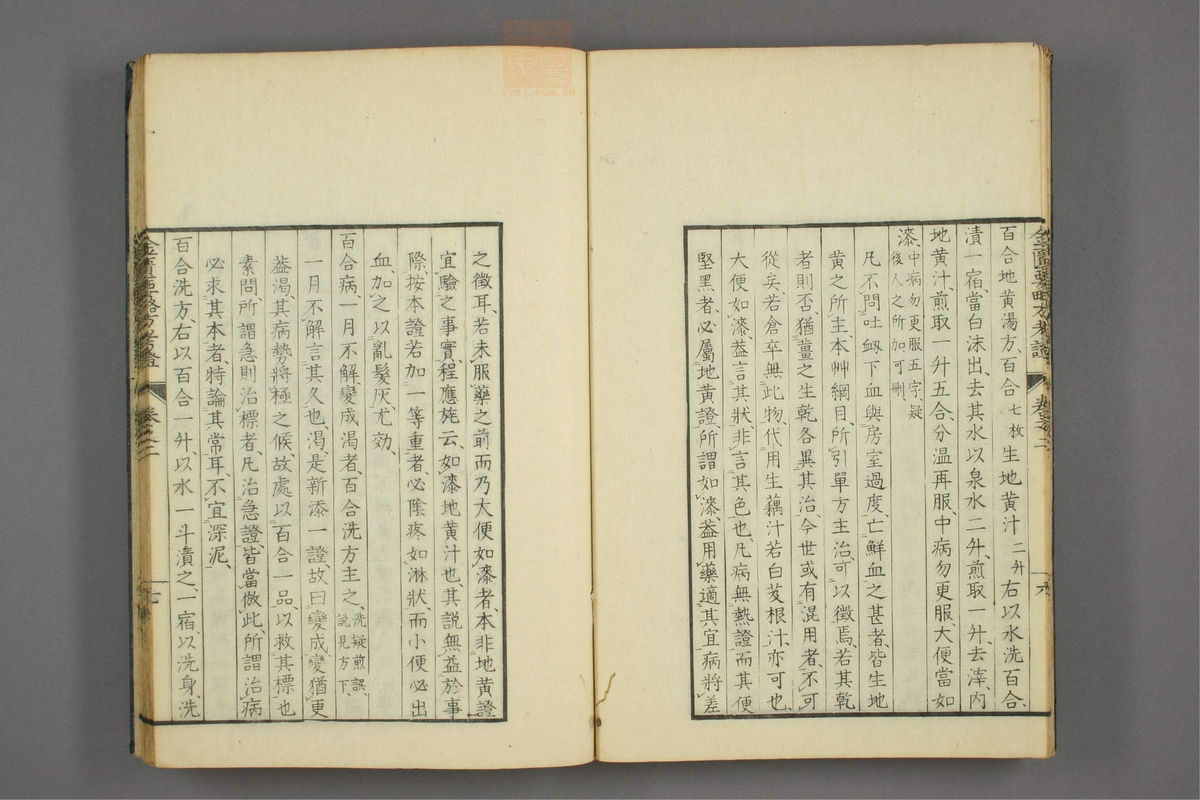 百合地黄湯方、百合七枚生地黄汁二升右以水洗百合、
漬一宿、當白沫出、去其水、以泉水二升、煎取一升、去滓、内
地黄汁、煎取一升五合、分温再服、中病勿更服、大便當如
漆、中病勿更服五字、疑
後人之所加、可刪、
凡不問吐衂下血與房室過度、亡鮮血之甚者、皆生地
黄之所主、本艸綱目、所引單方主治、可以徴焉、若其乾
者則否、猶薑之生乾各異其治、今世或有混用者、不可
從矣、若倉卒無此物、代用生藕汁、若白芨根汁、亦可也、
大便如漆、葢言其狀、非言其色也、凡病無熱證而其便
堅黑者、必屬地黄證、所謂如漆、葢用藥適其宜、病將差
之徴耳、若未服藥之前而乃大便如漆者、本非地黄證
宜驗之事實、程應旄云、如漆地黄汁也、其説無益於事
際、按本證若加一等重者、必陰疼如淋狀、而小便必出
血、加之以亂髮灰、尤効、
百合病、一月不解、變成渇者、百合洗方主之、洗疑煎誤、
説見方下、
一月不解、言其久也、渇、是新添一證、故曰變成、變猶更
葢渇、其病勢將極之候、故處以百合一品、以救其標也
素問、所謂急則治標者、凡治急證、皆當倣此、所謂治病
必求其本者、特論其常耳、不宜深泥、
百合洗方、右以百合一升、以水一斗漬之、一宿、以洗身、洗
金匱要略方考證
卷之二
七